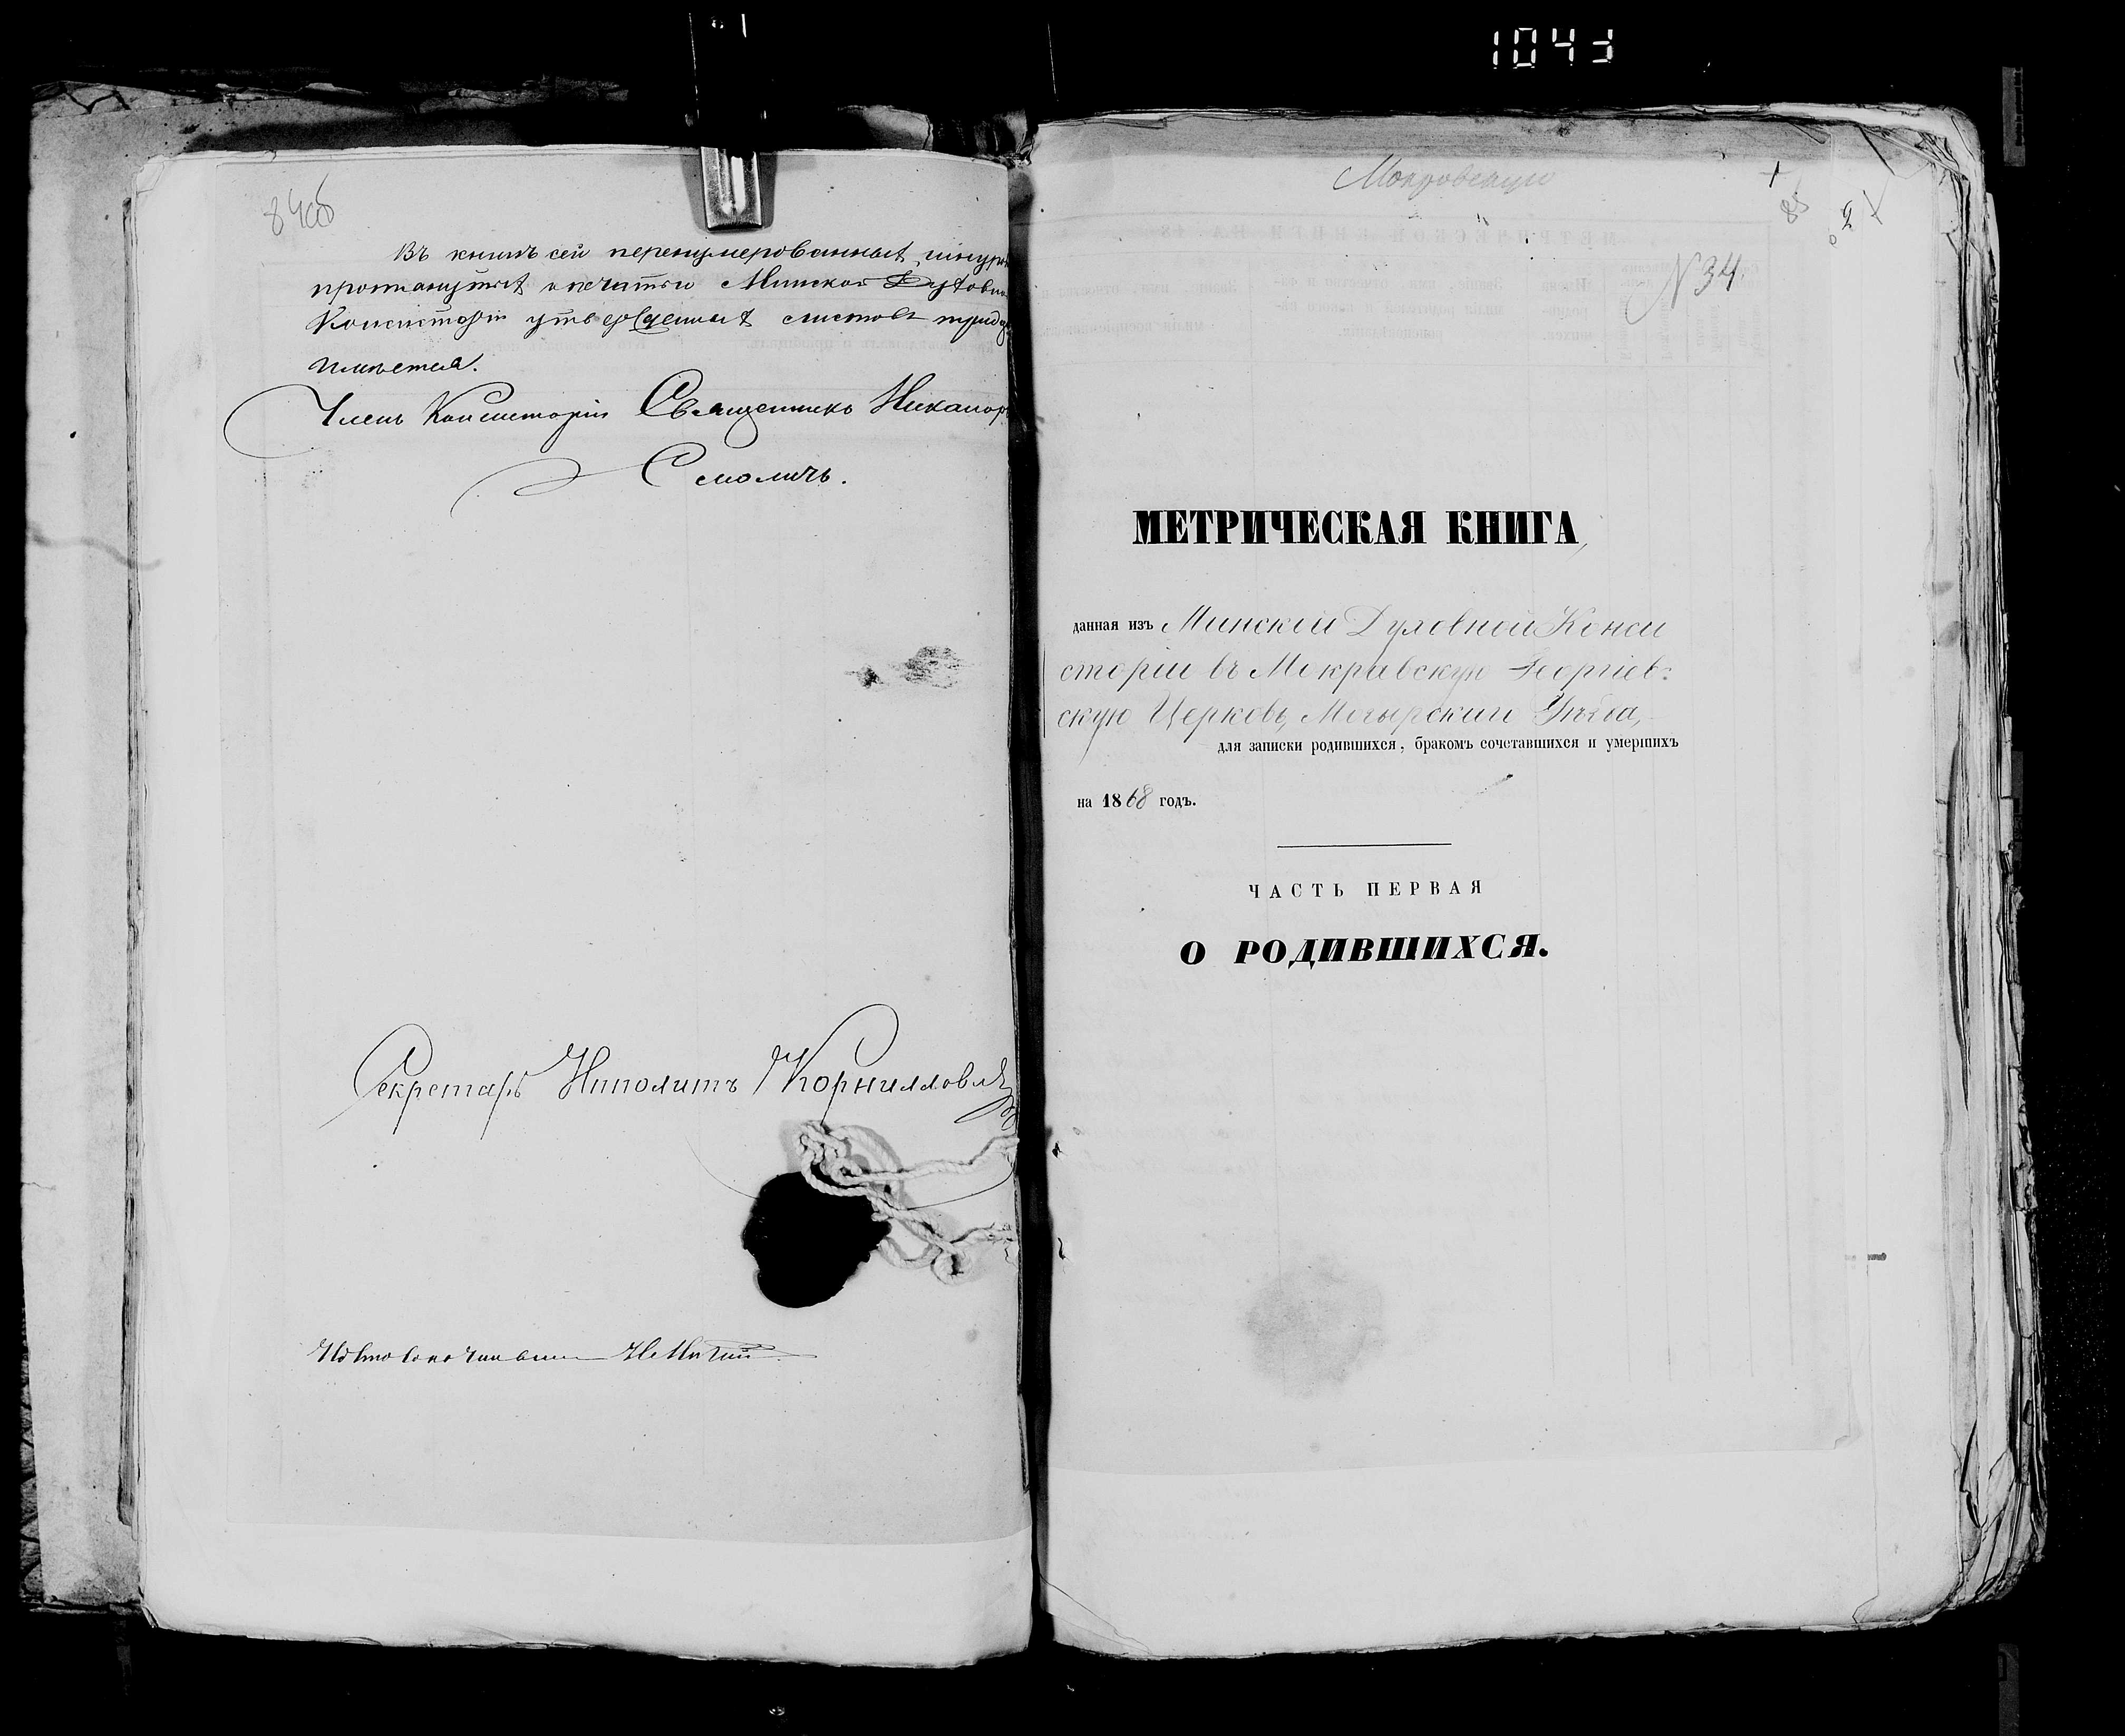 1043
84об
Въ книгѣ сей перенумерованныхъ, шнур
протянутыхъ и печатью Минской Духовн
Консисторіи утвержденныхъ листовъ
имѣется.
Членъ Консисторіи Священникъ Никаноръ
Смоличъ.
Секретарь Иполитъ Корниллов
85
N 34.
МЕТРИЧЕСКАЯ КНИГА,
данная изъ Минской Духовной Конси
сторіи въ Мокравскую Георгіев-
скую Церковь, Мозырскаго Уѣзда,
для записки родившихся, бракомъ сочетавшихся и умершихъ
на 1868 годъ.
ЧАСТЬ ПЕРВАЯ
О РОДИВШИХСЯ.